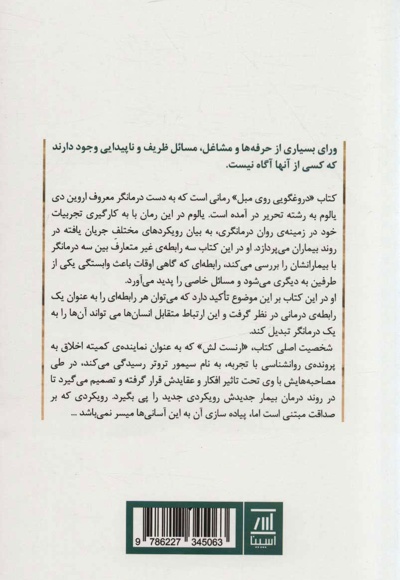 ورای بسیاری از حرفه‌ها و مشاغل، مسائل ظریف و ناپیدایی وجود دارند
که کسی از آنها آگاه نیست.
کتاب «دروغگویی روی مبل» رمانی است که به دست درمانگر معروف اروین دی
یالوم به رشته تحریر در آمده است. یالوم در این رمان با به کارگیری تجربیات
خود در زمینه‌ی روان درمانگری، به بیان رویکردهای مختلف جریان یافته در
روند بیماران می‌پردازد. او در این کتاب سه رابطه‌ی غیر متعارف بین سه درمانگر
با بیمارانشان را بررسی می‌کند، رابطه‌ای که گاهی اوقات باعث وابستگی یکی از
طرفین به دیگری می‌شود و مسائل خاصی را پدید می‌آورد.
او در این کتاب بر این موضوع تأکید دارد که می‌توان هر رابطه‌ای را به عنوان یک
رابطه‌ی درمانی در نظر گرفت و این ارتباط متقابل انسان‌ها می‌تواند آن‌ها را به
یک درمانگر تبدیل کند.
شخصیت اصلی کتاب، «ارنست لش» که به عنوان نماینده‌ی کمیته اخلاق به
پرونده‌ی روانشناسی با تجربه، به نام سیمور تروتر رسیدگی می‌کند، در طی
مصاحبه‌هایش با وی تحت تاثیر افکار و عقایدش قرار گرفته و تصمیم می‌گیرد تا
در روند درمان بیمار جدیدش رویکردی جدید را پی بگیرد. رویکردی که بر
صداقت مبتنی است اما، پیاده سازی آن به این آسانی‌ها میسر نمی‌باشد ...
آسیتا
9 786227 345063